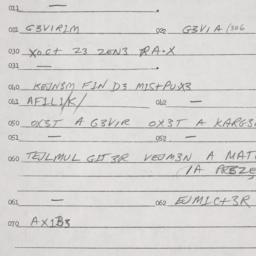 011 — .
021 G3VIR1M 022 G3VIA/306
030 XO.C+ 23 ZEN3 RA.X
031 — .
040 KEJNSM FIN D3 MIS+PUX3
041 AFILIK/ 042 —
050 OX3T A G3VIR OX3T A KARGS
051 — 052 —
060 TEJLMUL GIT3R VEJM3N A MAT
/A
061 — 062 EJMIC+3R
070 AX1B3